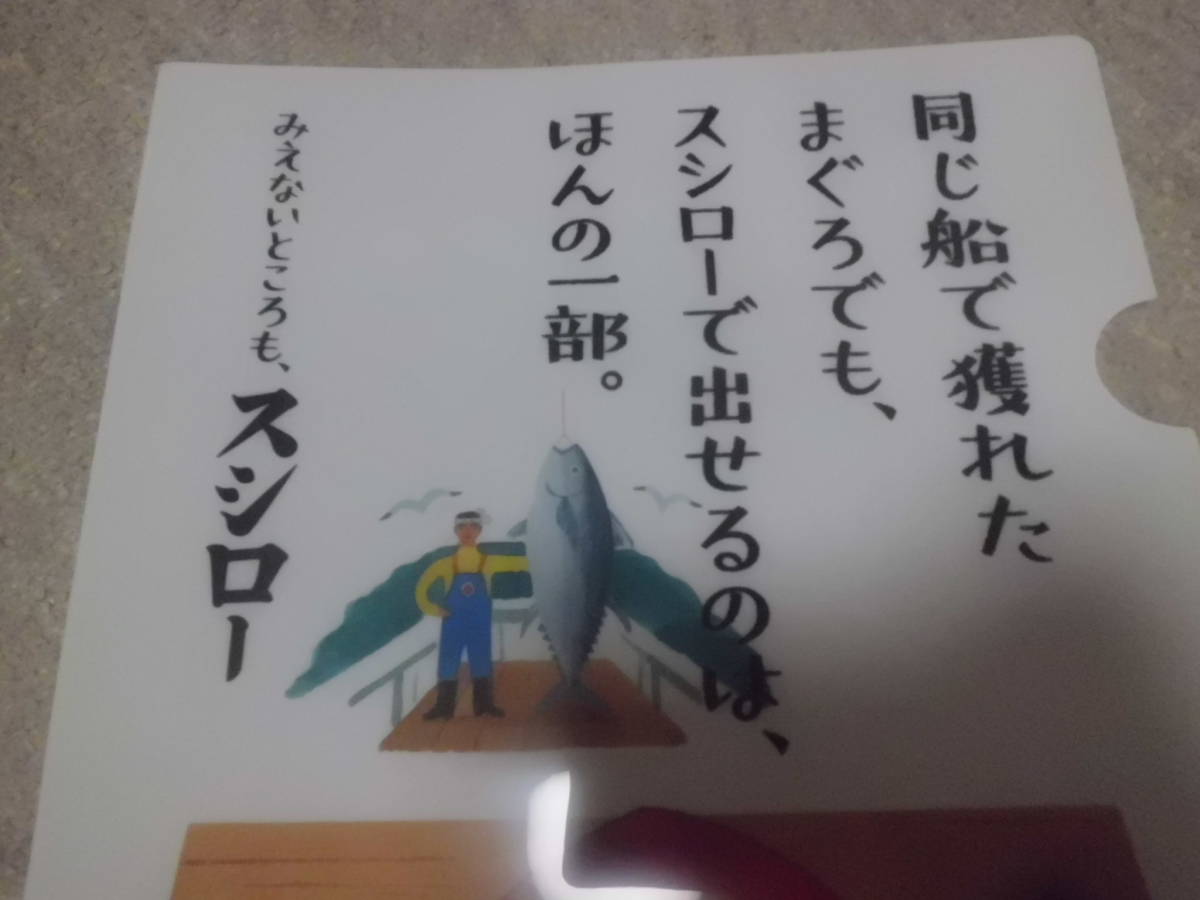 同じ船で獲れた
まぐろでも、
スシローで出せるのは、
ほんの一部。
みえないところも、スシロー